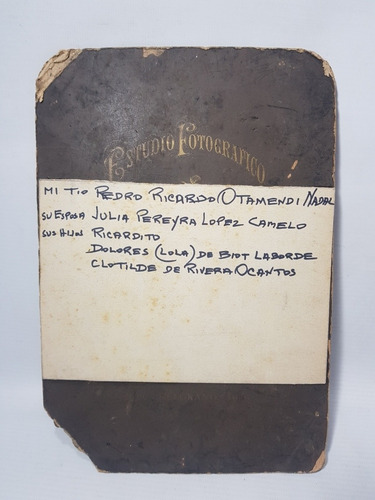 ESTUDIO FOTOGRAFICO
MI TIO PEDRO RICARDO OTAMENDI NADAL
SU ESPOSA JULIA PEREYRA LOPEZ CAMELO
SUS HIJOS RICARDITO
DOLORES (LOLA) DE BIOT LABORDE
CLOTILDE DE RIVERA OCANTOS